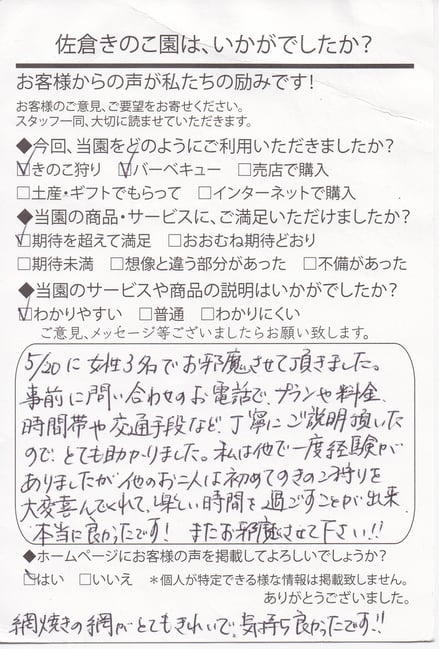 佐倉きのこ園は、いかがでしたか？
お客様からの声が私たちの励みです！
お客様のご意見、ご要望をお寄せください。
スタッフ一同、大切に読ませていただきます。
◆今回、当園をどのようにご利用いただきましたか？
☑きのこ狩り ☑バーベキュー □売店で購入
□土産・ギフトでもらって □インターネットで購入
◆当園の商品・サービスに、ご満足いただけましたか？
☑期待を超えて満足 □おおむね期待どおり
□期待未満 □想像と違う部分があった □不備があった
◆当園のサービスや商品の説明はいかがでしたか？
☑わかりやすい □普通 □わかりにくい
ご意見、メッセージ等ございましたらお願い致します。
5/20に女性3名でお邪魔させて頂きました。
事前に問い合わせのお電話で、プランや料金、
時間帯や交通手段など、丁寧にご説明頂した
ので、とても助かりました。私は他で一度経験が
ありましたが他のお二人は初めてのきのこ狩りを
大変喜んでくれて、楽しい時間を過ごすことが出来
本当に良かったです！ またお邪魔させて下さい!!
◆ホームページにお客様の声を掲載してよろしいでしょうか？
☑はい □いいえ ＊個人が特定できる様な情報は掲載致しません。
ありがとうございました。
網焼きの網がとてもきれいで、気持ち良かったです!!